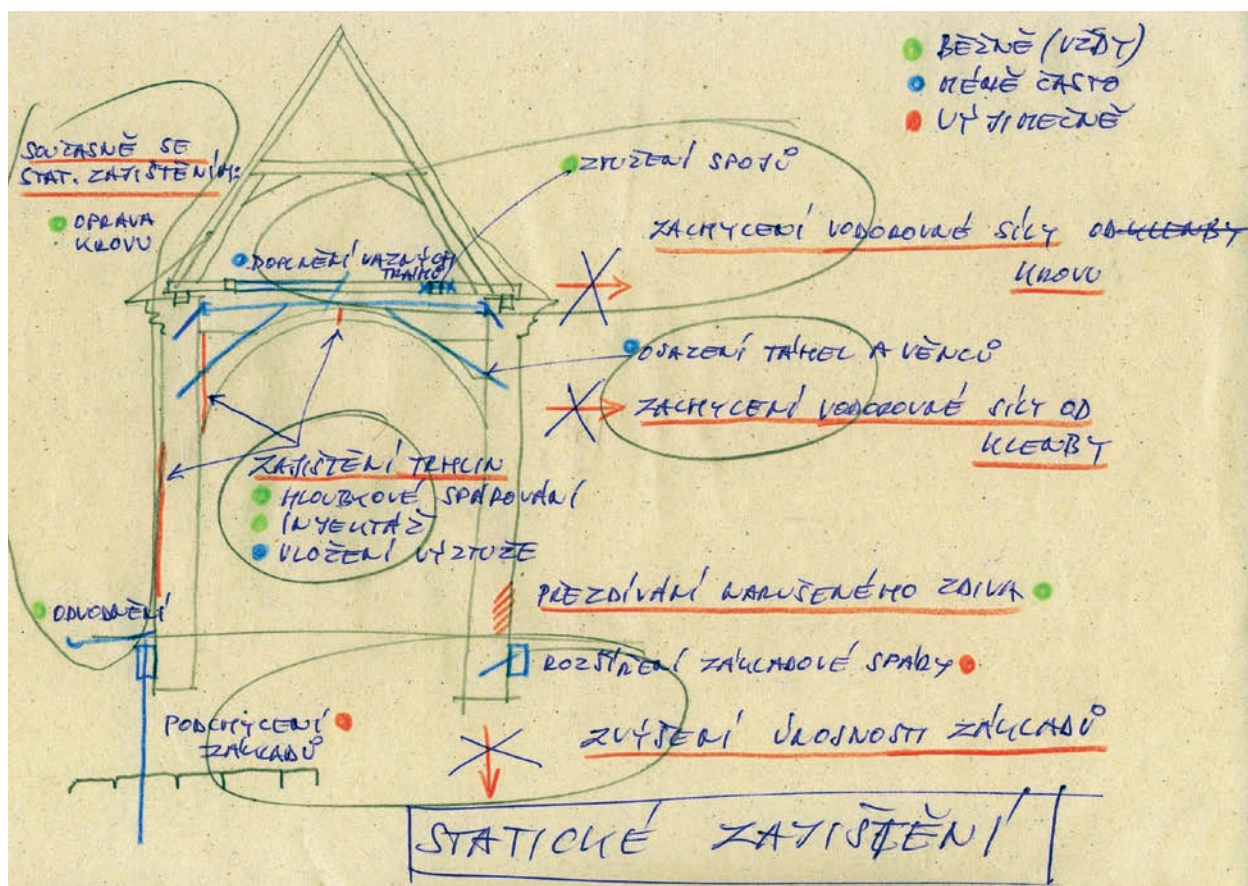 BĚŽNĚ (VŽDY)
MÉNĚ ČASTO
VÝJIMEČNĚ
SOUČASNĚ SE
STAT. ZAJIŠTĚNÍM:
OPRAVA
KROVU
ZTUŽENÍ SPOJŮ
ZACHYCENÍ VODOROVNÉ SÍLY OD KLENBY
KROVU
DOPLNĚNÍ VAZNÝCH
TRÁMŮ
OSAZENÍ TÁHEL A VĚNCŮ
ZACHYCENÍ VODOROVNÉ SÍLY OD
KLENBY
ZAJIŠTĚNÍ TRHLIN
HLOUBKOVÉ SPÁROVÁNÍ
INJEKTÁŽ
VLOŽENÍ VÝZTUŽE
ODVODNĚNÍ
PŘEZDÍVÁNÍ NARUŠENÉHO ZDIVA
ROZŠÍŘENÍ ZÁKLADOVÉ SPÁRY
PODCHYCENÍ
ZÁKLADŮ
ZVÝŠENÍ ÚNOSNOSTI ZÁKLADŮ
STATICKÉ ZAJIŠTĚNÍ